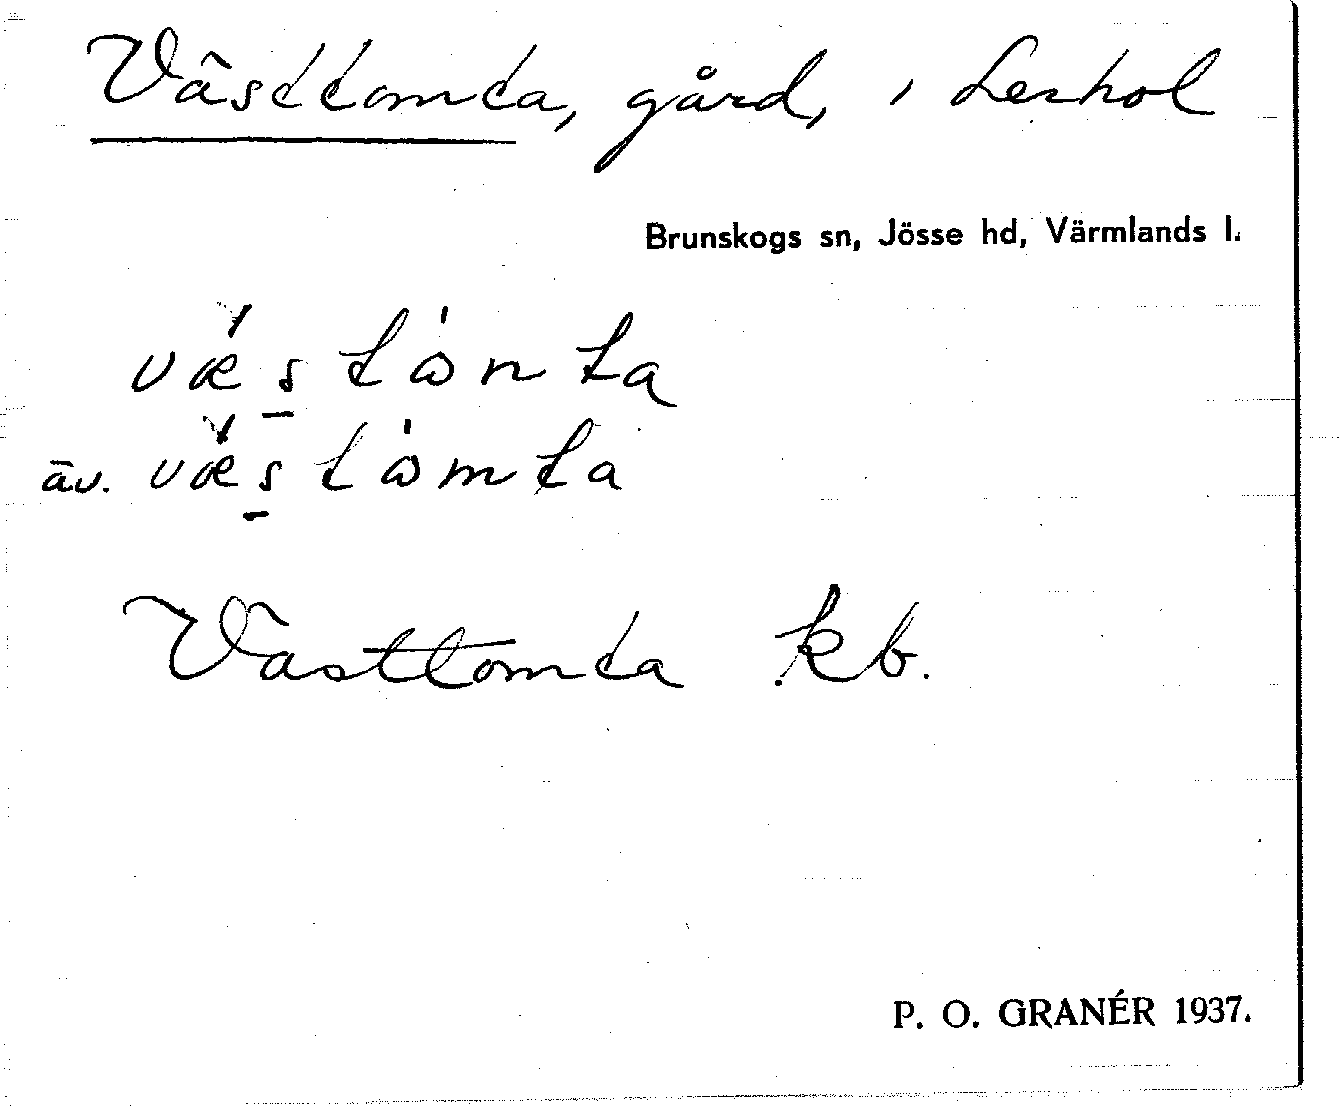 Västtomta, gård, i Lerhol
Brunskogs sn, Jösse hd, Värmlands l.
væstònta
äv. væstòmta
Västtomta kb.
P. O. GRANÉR 1937.